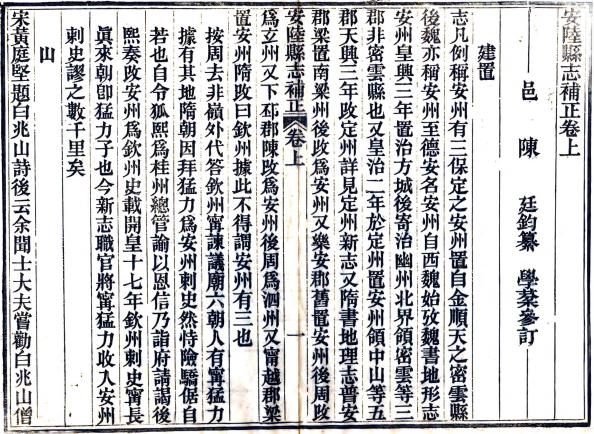 安陸縣志補正卷上
邑 陳 廷鈞纂 學棻參訂
建置
志凡例稱安州有三保定之安州置自金順天之密雲縣
後魏亦稱安州至德安名安州自西魏始攷魏書地形志
安州皇興三年置治方城後寄治幽州北界領密雲等三
郡非密雲縣也又皇治二年於定州置安州領中山等五
郡天興三年改定州詳見定州新志又隋書地理志普安
郡梁置南梁州後改爲安州又樂安郡舊置安州後周改
安陸縣志補正 卷上 一
爲立州又下邳郡陳改爲安州後周爲泗州又甯越郡梁
置安州隋改曰欽州據此不得謂安州有三也
按周去非嶺外代答欽州甯諫議廟六朝人有甯猛力
據有其地隋朝因拜猛力爲安州刺史然恃險驕倨自
若也自令狐熙爲桂州總管諭以恩信乃詣府請謁後
熙奏改安州爲欽州史載開皇十七年欽州刺史甯長
眞來朝卽猛力子也今新志職官將甯猛力收入安州
刺史謬之數千里矣
山
宋黃庭堅題白兆山詩後云余聞士大夫嘗勸白兆山僧